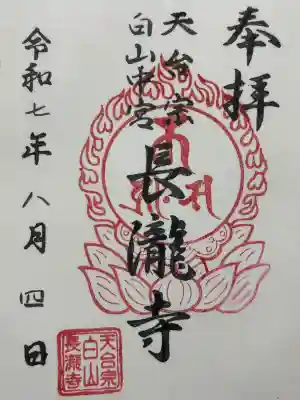 奉拝
天台宗
白山中宮
長瀧寺
令和七年八月四日
天台宗
白山
長瀧寺